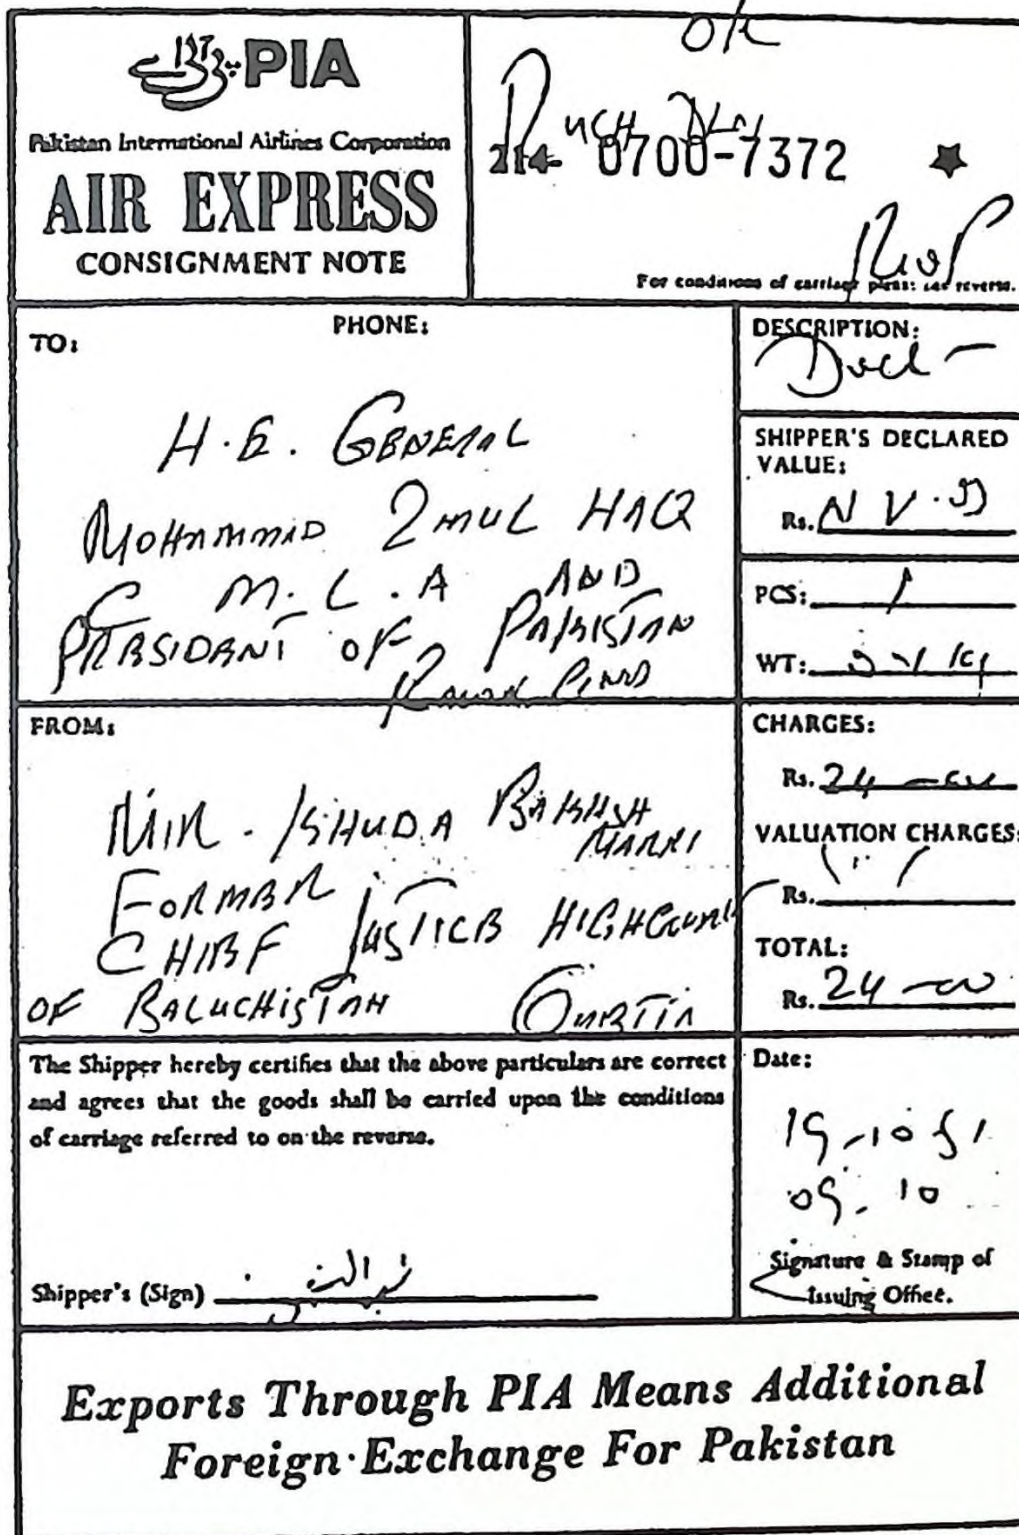 PIA
Pakistan International Airlines Corporation
AIR EXPRESS
CONSIGNMENT NOTE
214- 0700-7372
For conditions of carriage please see reverse.
TO:
PHONE:
H.E. GENERAL
MOHAMMAD ZIAUL HAQ
C M.L.A AND
PRESIDENT OF PAKISTAN
RAWAL PINDI
DESCRIPTION:
SHIPPER'S DECLARED
VALUE:
Rs. N V.D
PCS: 1
WT:
FROM:
MIR. KHUDA BAKHSH
MARRI
FORMER
CHIEF JUSTICE HIGH COURT
OF BALUCHISTAN QUETTA
CHARGES:
Rs. 24
VALUATION CHARGES:
Rs.
TOTAL:
Rs. 24
The Shipper hereby certifies that the above particulars are correct
and agrees that the goods shall be carried upon the conditions
of carriage referred to on the reverse.
Shipper's (Sign)
Date:
19-10-81
09.10
Signature & Stamp of
Issuing Office.
Exports Through PIA Means Additional
Foreign Exchange For Pakistan